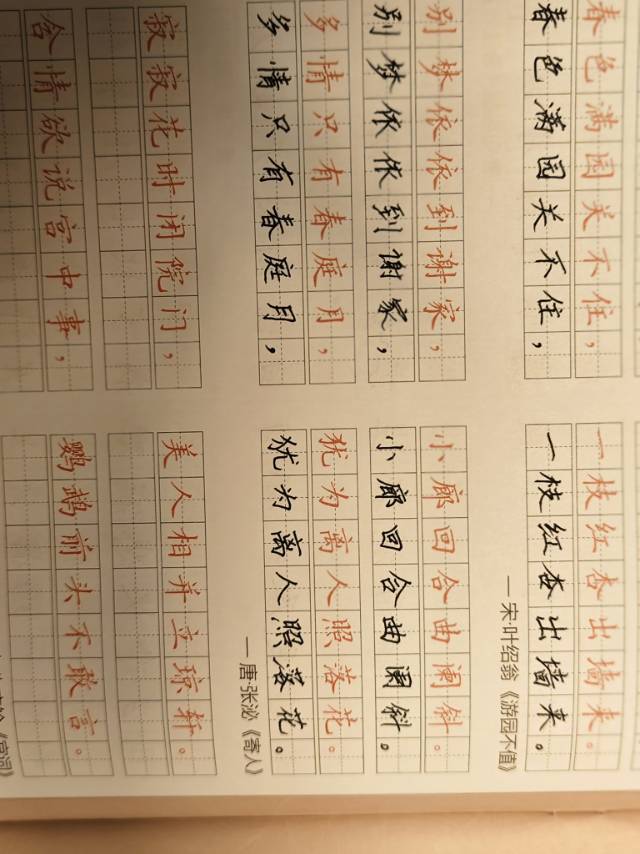 春色满园关不住，
一枝红杏出墙来。
春色满园关不住，
一枝红杏出墙来。
— 宋·叶绍翁《游园不值》
别梦依依到谢家，
小廊回合曲阑斜。
别梦依依到谢家，
小廊回合曲阑斜。
多情只有春庭月，
犹为离人照落花。
多情只有春庭月，
犹为离人照落花。
— 唐·张泌《寄人》
寂寂花时闭院门，
美人相并立琼轩。
含情欲说宫中事，
鹦鹉前头不敢言。
《宫词》